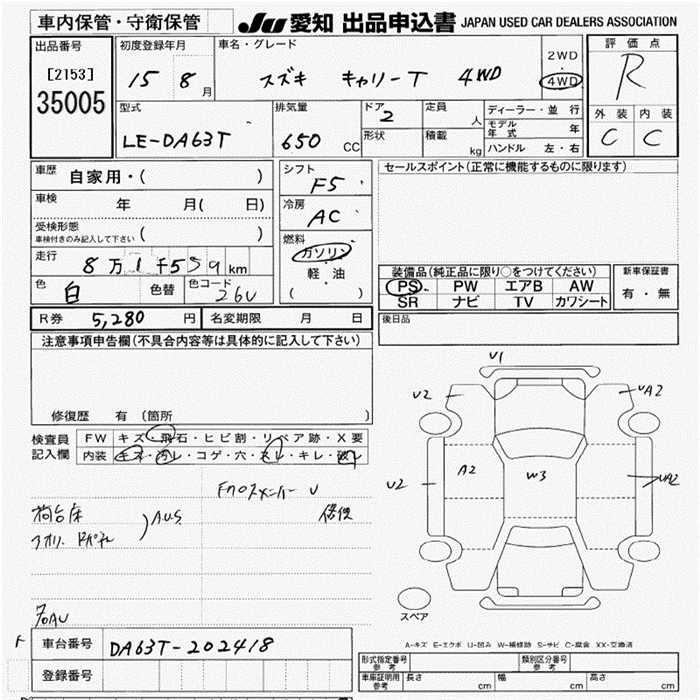 車内保管・守衛保管
JU 愛知 出品申込書 JAPAN USED CAR DEALERS ASSOCIATION
出品番号
[2153]
35005
初度登録年月
15 8月
車名・グレード
スズキ キャリーT 4WD
2WD
・
4WD
評価点
R
外装 内装
C C
型式
LE-DA63T
排気量
650 CC
ドア
2
形状
定員
人
積載
kg
ディーラー・並行
モデル年式 年
ハンドル 左・右
車歴
自家用・( )
車検
年 月( 日)
受検形態
車検付きのみ記入して下さい ( )
走行
8万1千559km
色
白
色替
色コード
26U
シフト
F5
冷房
AC
燃料
ガソリン
軽・油
( )
セールスポイント(正常に機能するものに限ります)
装備品(純正品に限り○をつけてください)
PS PW エアB AW
SR ナビ TV カワシート
新車保証書
有・無
後日品
R券 5,280 円
名変期限 月 日
注意事項申告欄(不具合内容等は具体的に記入して下さい)
修復歴 有(箇所 )
検査員
記入欄
FW キズ・飛石・ヒビ割・リペア跡・X要
内装 キズ・汚レ・コゲ・穴・スレ・キレ・破レ
荷台床
A.U.S
V1
U2
UA2
U2
A2
W3
UA2
スペア
A-キズ E-エクボ U-凹み W-補修跡 S-サビ C-腐食 XX-交換済
車台番号
DA63T-202418
登録番号
型式指定番号
参考
類別区分番号
参考
車庫証明用
参考
長さ cm
幅 cm
高さ cm